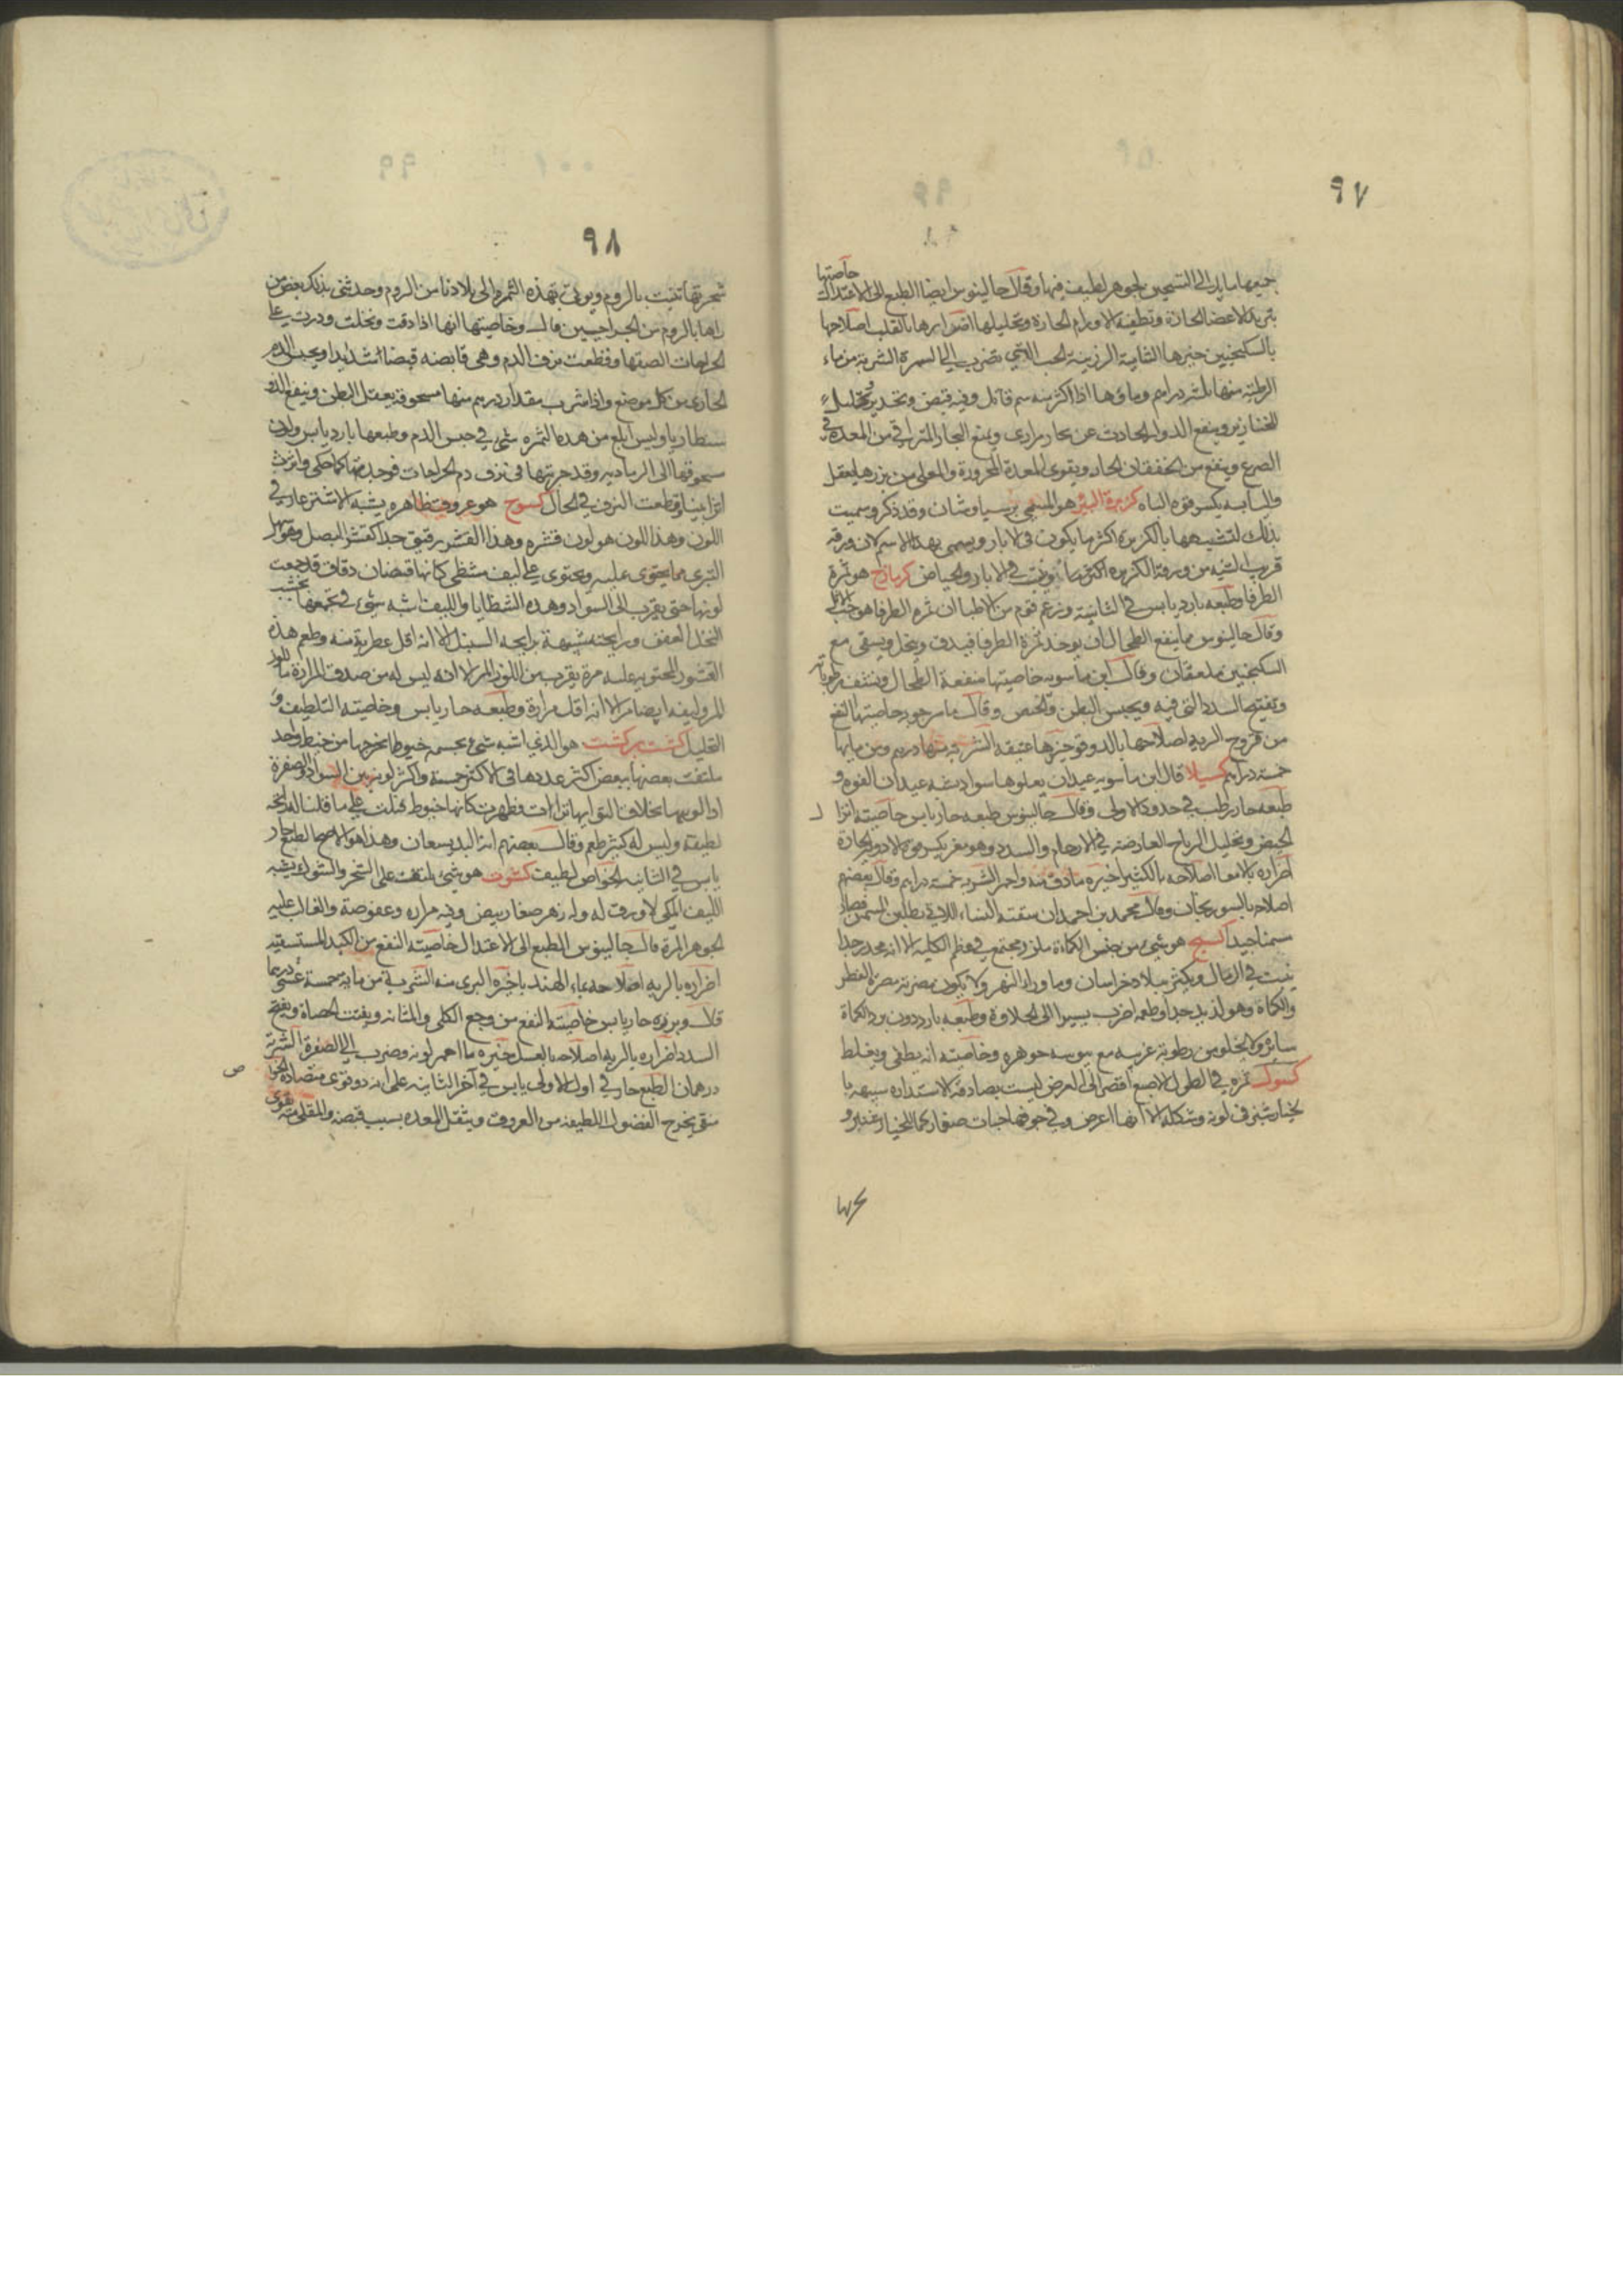 ٩٧
جميعها مايل الى التسخين لجوهر لطيف فيها وقال جالينوس ايضا الطبع الى الاعتدال خاصتها
الاعضا الحارة وتطفية الاورام الحارة وتحليلها اضرارها بالقلب اصلاحها
بالسكنجبين خيرها الشامية الرزينة الحب اللاتي تضرب الى السمرة الشربة من ماء
الرطبة منها ثلث دراهم وماؤها اذا اكثر منه سم قاتل وفيه قبض وتخدير وتحليل
للخنازير وينفع الدوار الحادث عن بخار مراري ويمنع البخار المتراقي من المعدة في
الصرع وينفع من الخفقان الحار ويقوي المعدة المحرورة والمقلي من بزرها يعقل
واليابسه يكسر قوه الباه كزبرة البير هو المسمى برسياوشان وقد ذكر وسميت
بذلك لتشبيهها بالكزبرة اكثر ما يكون في الابار ويسمى بهذا الاسم لان ورقه
قريب الشبه من ورقة الكزبره اكثر ما ينبت في الابار والحياض كزمازج هو ثمرة
الطرفا وطبعه بارد يابس في الثانية وزعم قوم من الاطبا ان ثمره الطرفا هو حب الاثل
وقال جالينوس مما ينفع الطحال ان يوخذ ثمرة الطرفا فيدق وينخل ويسقى مع
السكنجبين ملعقتان وقال ابن ماسويه خاصيتها منفعة الطحال وينشف رطوباته
وتفتيح السدد التي فيه ويحبس البطن والحيض وقال ماسرجويه خاصيتها النفع
من قروح الريه اصلاحها بالدوقو خيرها عتيقه الشربة منها درهم ومن مايها
خمسة دراهم كسيلا قال ابن ماسويه عيدان يعلوها سواد يشبه عيدان الفوه و
طبعه حار رطب في حدود الاولى وقال جالينوس طبعه حار يابس خاصيته انزال
الحيض وتحليل الرياح العارضة في الارحام والسدد وهو مغر يكسر قوة الادوية الحادة
اضراره بالامعا اصلاحه بالكثيرا خيره مادق منه واحمر الشربه خمسة دراهم وقال بعضهم
اصلاحه بالسورنجان وقال محمد بن احمد ان سقته النساء اللاتي يطلبن السمن فصار
سمنا جيدا كسنج هو شي من جنس الكماة ملزز مجتمع في عظم الكلية الا انه مخدر جدا
ينبت في الرمال ويكثر ببلاد خراسان وما وراء النهر ولا يكون مضرته مضرة الفطر
والكماة وهو لذيذ جدا وطعمه اضرب يسيرا الى الحلاوة وطبعه بارد دون برد الكماة
سائره ولا يخلو من رطوبة غريبه مع يبوسه جوهره وخاصيته انه يطفي ويغلظ
ثمره في الطول الاصبع اقصر الى العرض ليست بصادقه الاستداره شبيهه با
لخيارشنبر في لونه وشكله الا انها اعرض وفي جوفها حبات صغار كما للخيارشنبر و
شجرتها
٩٨
شجرتها تنبت بالروم ويوتى بهذه الثمرة الى بلادنا من الروم وحدثني بذلك بعض من
راها بالروم من الجراحيين قال وخاصيتها انها اذا دقت ونخلت وذرت على
الجراحات الصقتها وقطعت نزف الدم وهي قابضه قبضا شديدا ويحبس الدم
الجاري من كل موضع واذا شرب مقدار درهم منها مسحوقة يعقل البطن وينفع الذ
سنطاريا وليس ابلغ من هذه الثمره شي في حبس الدم وطبعها بارد يابس ولون
مسحوقها الى الرماديه وقد جربتها في نزف دم الجراحات فوجدتها كما حكى واثرت
اثرا بينا وقطعت النزف في الحال كسوح هو عروق ظاهره يشبه الاشترغار في
اللون وهذا اللون هو لون قشره وهذا القشر رقيق جدا كقشر البصل
مما يحتوى عليه ويحتوى على ليف مشظى كانها قضبان دقاق قد جمعت
لونها حتى يقرب الى السواد وهذه الشظايا والليف اشبه شي في تجمعها بخشب
النخل العفن ورايحته شبيهة برايحه السنبل الا انه اقل عطرية منه وطعم هذه
القشور المحتويه عليه مرة يقرب من اللوز المر الا انه ليس له من صدق المرارة ما للوز
المر وليفه ايضا مر الا انه اقل مرارة وطبعه حار يابس وخاصيته التلطيف و
التحليل كشت بركشت هو الذي اشبه شي بجسم خيوطا تخرجها من خيط واحد
ملتفت بعضها ببعض اكثر عددها في الاكثر خمسة واكثر لونه بين السواد والصفرة
لطيفة وليس له كبير طعم وقال بعضهم انه البدسعان وهذا هو الاصح الطبع حار
يابس في الثانيه الخواص لطيف كشوت هو شي يلتف على الشجر والشوك يشبه
الليف المكي لا ورق له وله زهر صغار بيض وفيه مراره وعفوصة والغالب عليه
الجوهر المرة قال جالينوس الطبع الى الاعتدال خاصيته النفع من الكبد المستسقيه
اضراره بالريه اصلاحه بماء الهندبا خيره البري منه الشربة من مايه خمسة عشر درهما
قال وبزره حار يابس خاصيته النفع من وجع الكلى والمثانه ويفتت الحصاة ويفتح
السدد اضراره بالريه اصلاحه بالعسل خيره ما احمر لونه وضرب الى الصفرة الشربة
درهمان الطبع حار في اول الاولى يابس في آخر الثانيه على انه ذو قوى متضادة الخواص
منقي يخرج الفضول اللطيفه من العروق ويثقل المعده بسبب قبضه والمقلي منه قوى